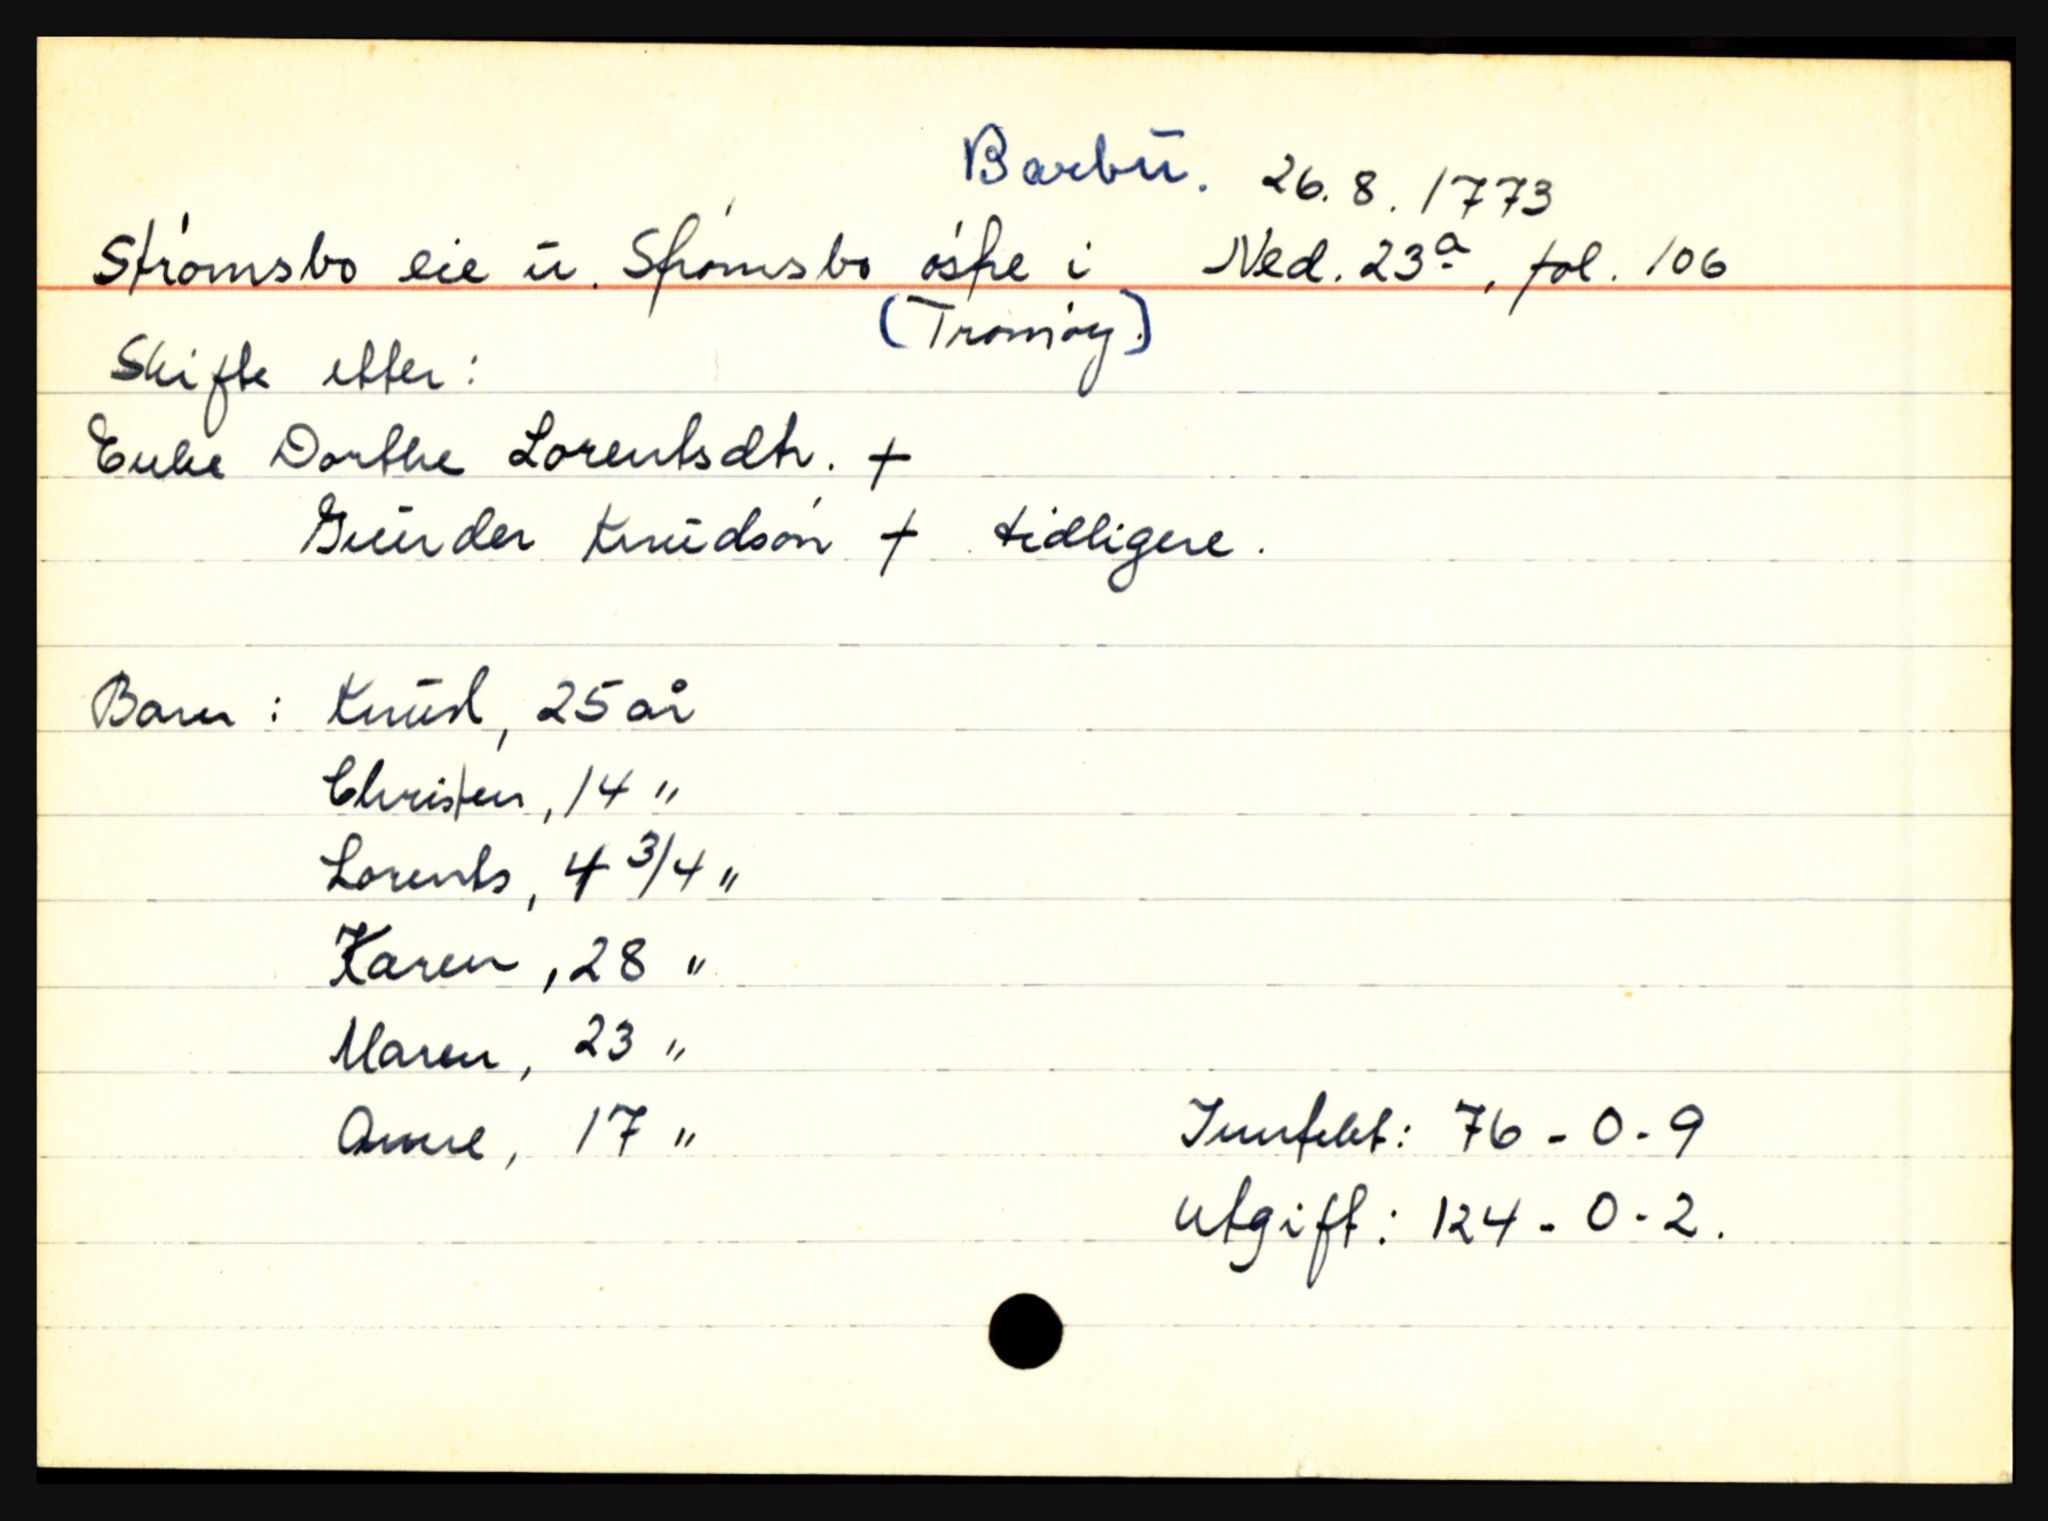 Barbu. 26.8.1773
Strømsbo eie u. Strømsbo østre i Ned. 23a, fol. 106
(Tromøy.)
Skifte etter:
Enke Dorthe Lorentsdtr. +
Gunder Knudsøn + tidligere.
Barn: Knud, 25 år
Christen, 14 "
Lorents, 4 3/4 "
Karen, 28 "
Maren, 23 "
Anne, 17 "
Inntekt: 76 - 0 - 9
Utgift: 124 - 0 - 2.